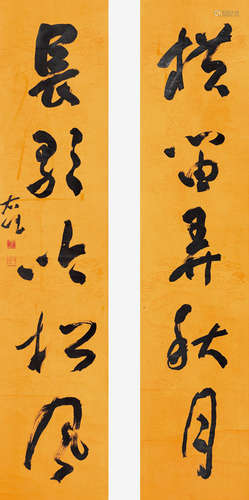 横笛弄秋月
長歌吟松風